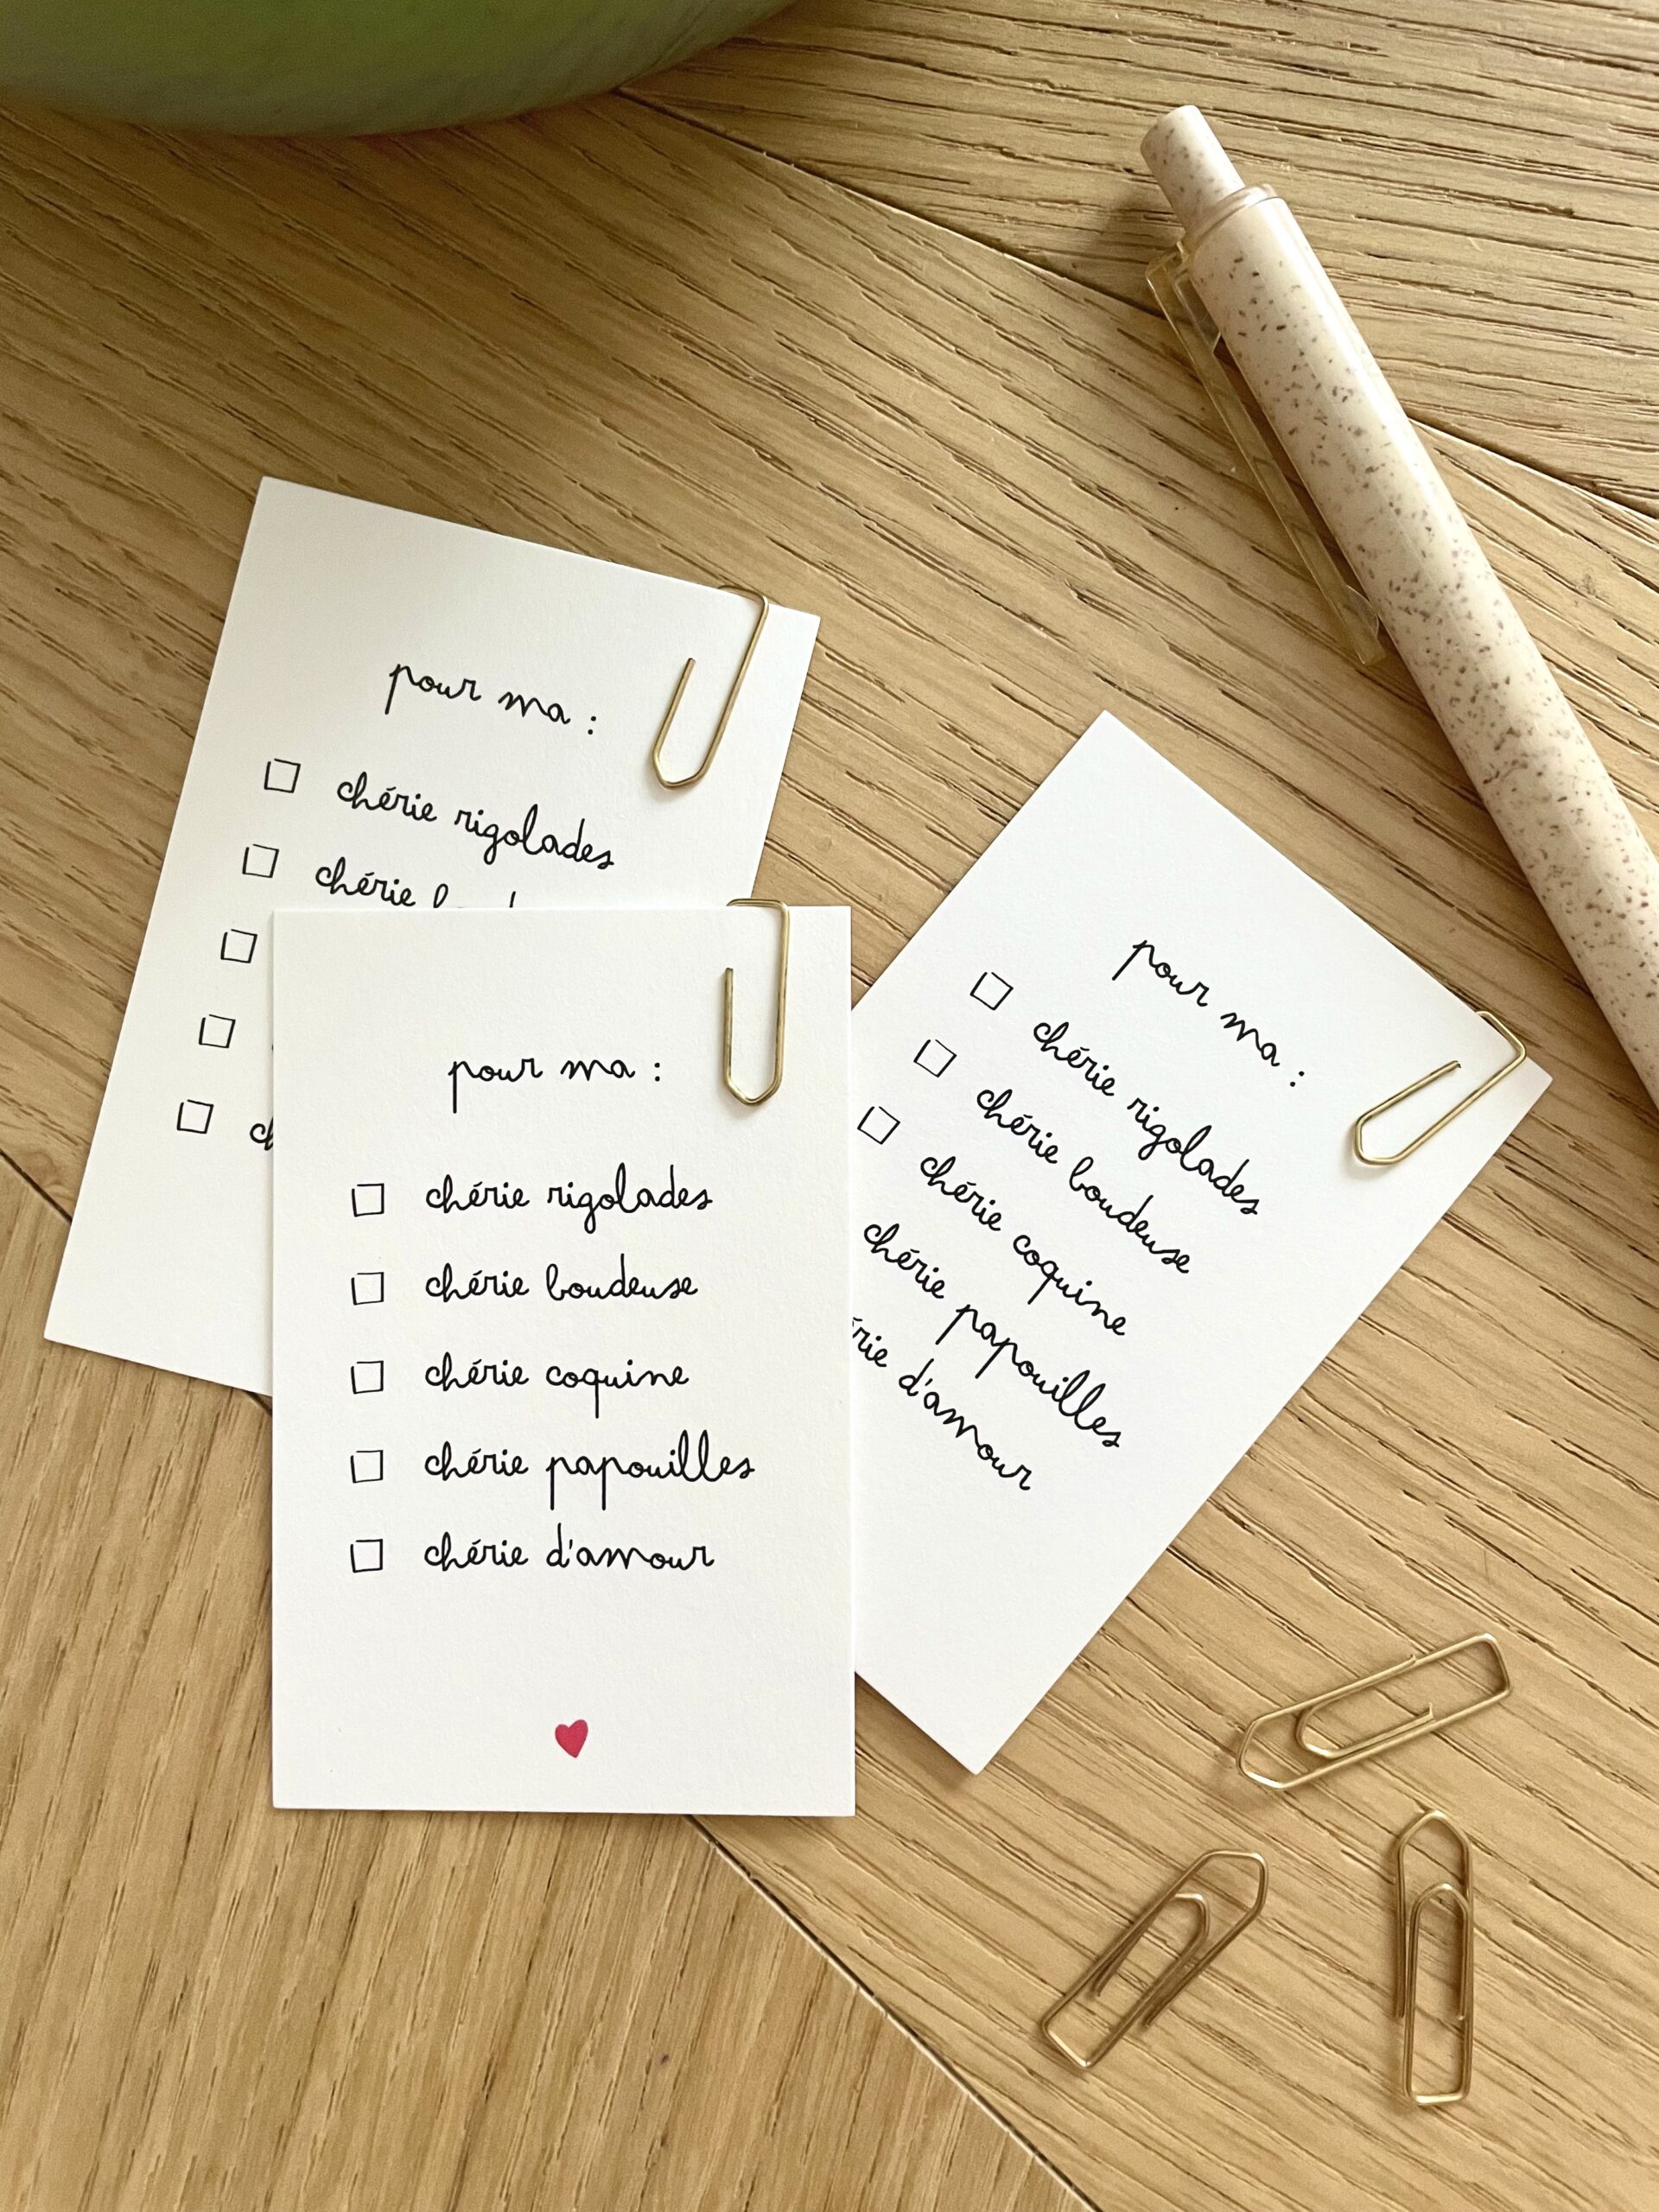 pour ma :
chérie rigolades
chérie
pour ma :
chérie rigolades
chérie boudeuse
chérie coquine
chérie papouilles
chérie d'amour
pour ma :
chérie rigolades
chérie boudeuse
chérie coquine
chérie papouilles
d'amour